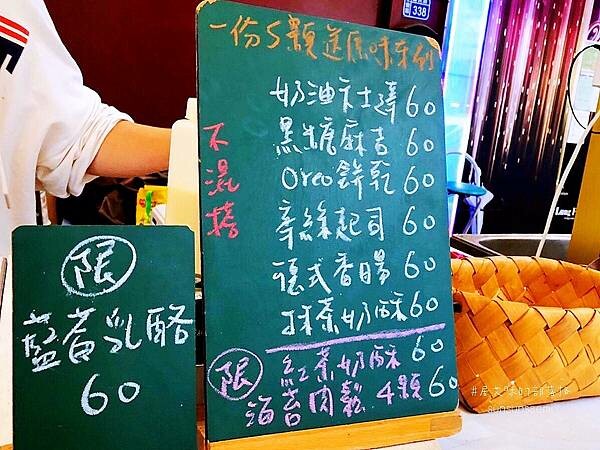 338
一份5顆送原味系列
不混搭
奶油卡士達 60
黑糖麻吉 60
Oreo餅乾 60
辛絲起司 60
德式香腸 60
抹茶奶酥 60
限
紅茶奶酥 60
海苔肉鬆 4顆 60
限
藍苺乳酪
60